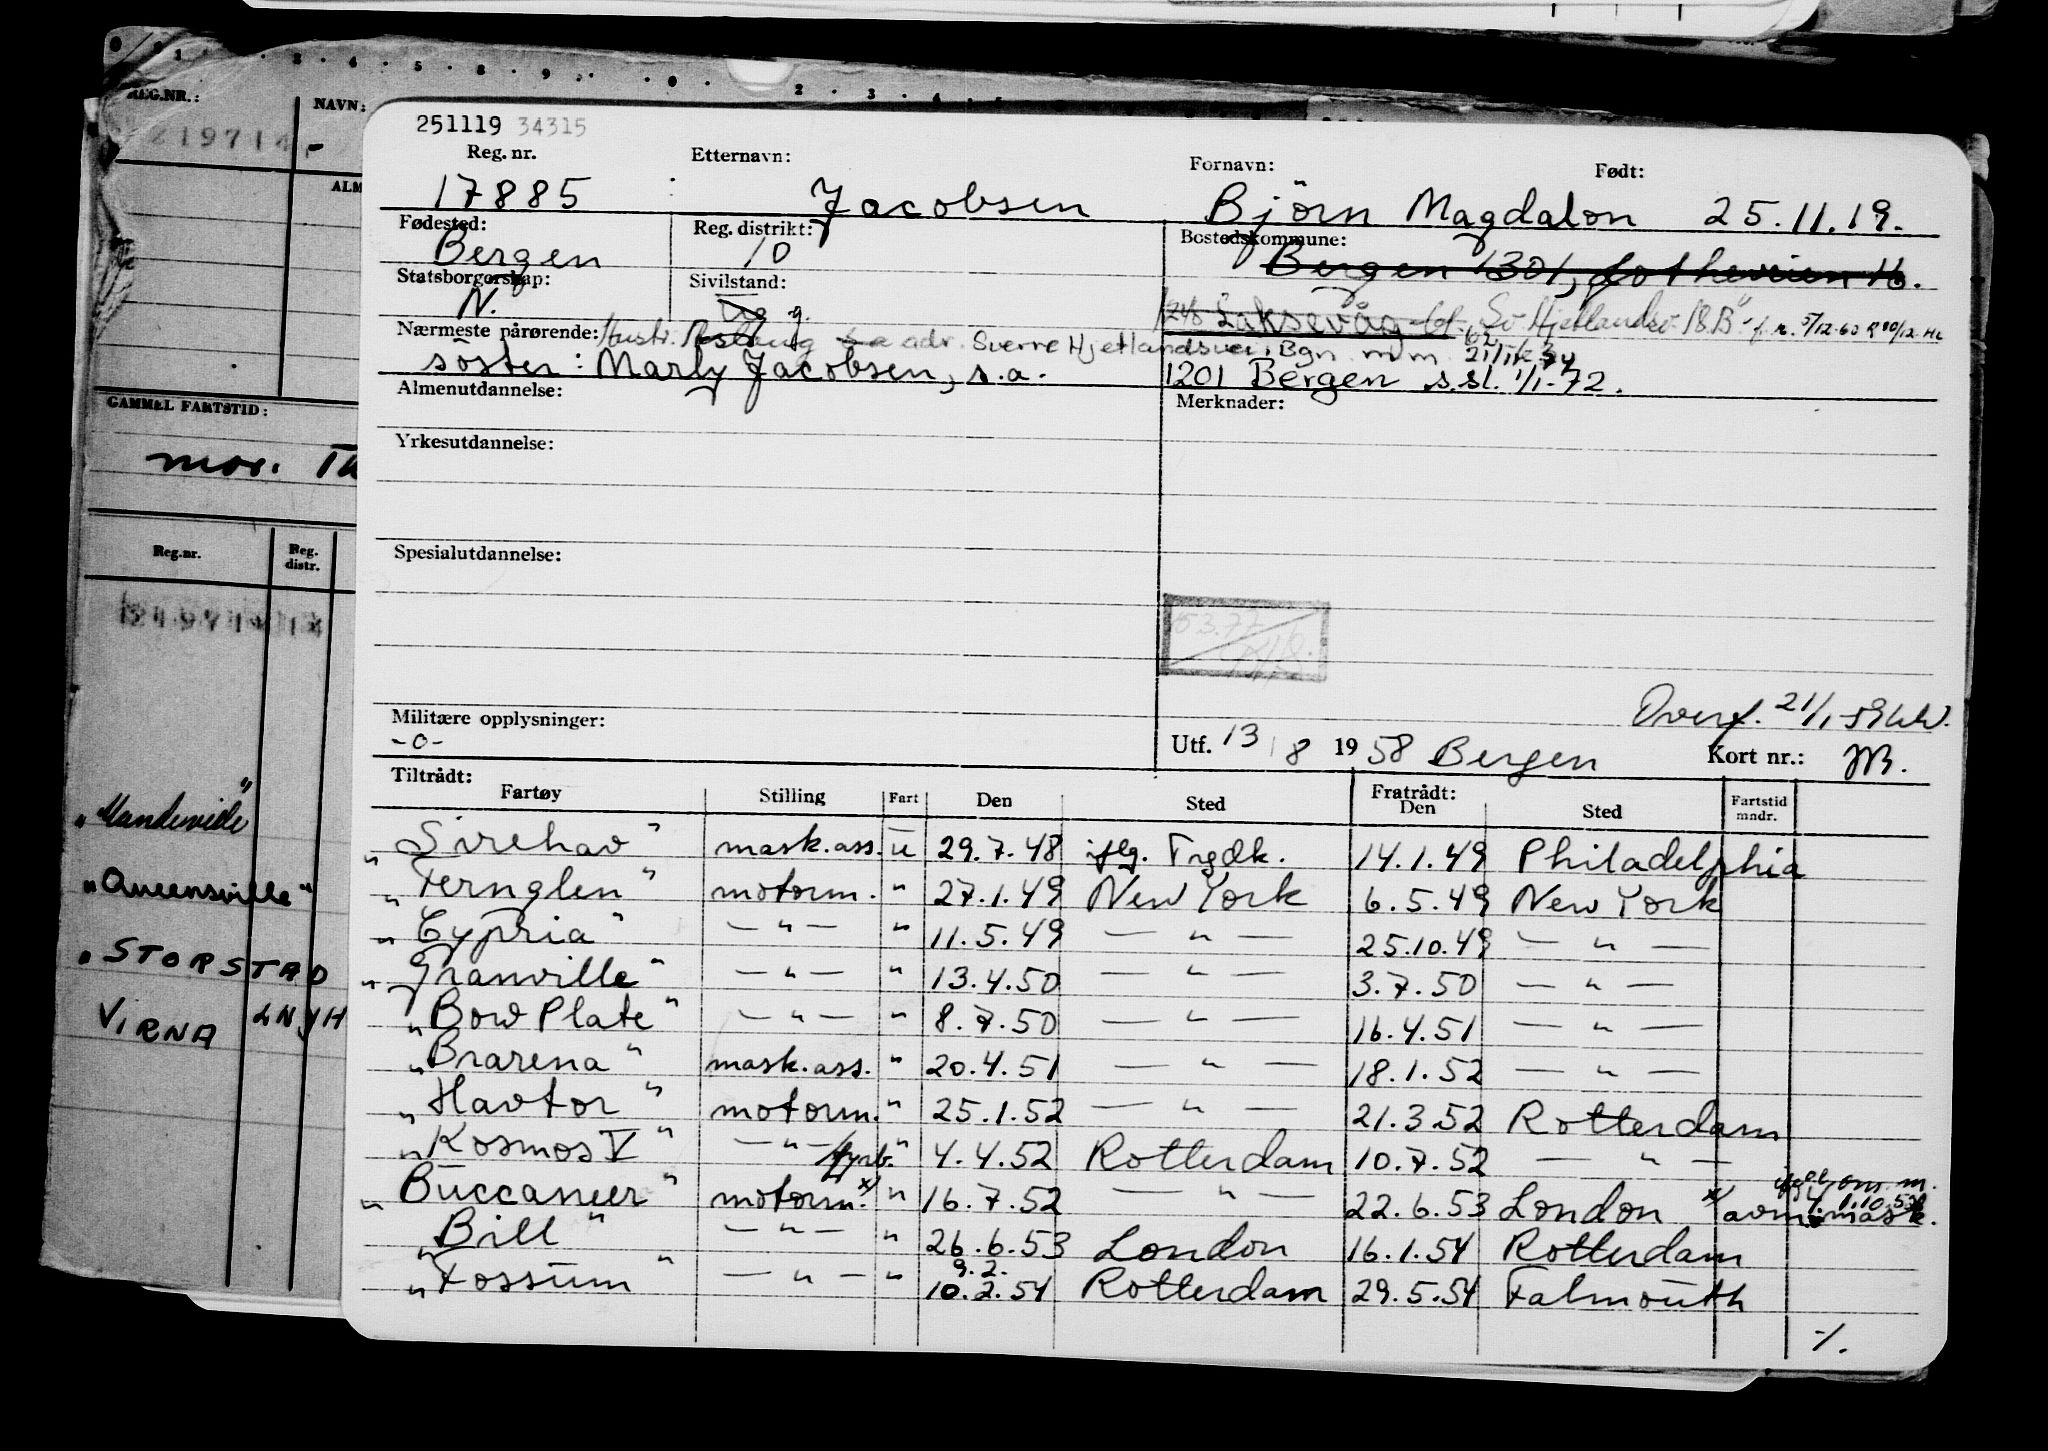 REG.NR.:
NAVN:
219714
GAMMEL FARTSTID:
mor.
Reg.nr.
Reg. distr.
"Mandeville"
"Queensville"
"STORSTAD
VIRNA LNJH
251119 34315
Reg. nr. Etternavn: Fornavn: Født:
17885 Jacobsen Björn Magdalon 25.11.19.
Fødested: Reg. distrikt: Bostedskommune:
Bergen 10 Bergen 1301,
Statsborgerskap: Sivilstand:
N. Ug g. Laksevåg
Nærmeste pårørende: Hustr. adr. Sverre Hjetlandsvei, Bgn
söster: Marly Jacobsen, s.a. 1201 Bergen s.sl. 1/1-72.
Almenutdannelse: Merknader:
Yrkesutdannelse:
Spesialutdannelse:
Militære opplysninger:
-0-
Overf. 21/1-59
Utf. 13/8 1958 Bergen Kort nr.:
Tiltrådt: Fratrådt:
Fartøy Stilling Fart Den Sted Den Sted Fartstid mndr.
"Sirehav" mask.ass. u 29.7.48 iflg. Frgdk. 14.1.49 Philadelphia
"Fernglen" motorm. " 27.1.49 New York 6.5.49 New York
"Cypria" — " — " 11.5.49 — " — 25.10.49 — " —
"Granville" — " — " 13.4.50 — " — 3.7.50 — " —
"Bow Plate" — " — " 8.7.50 — " — 16.4.51 — " —
"Brarena" mask.ass. " 20.4.51 — " — 18.1.52 — " —
"Havtor" motorm. " 25.1.52 — " — 21.3.52 Rotterdam
"Kosmos V" — " — fyrb. " 4.4.52 Rotterdam 10.7.52 — " —
"Buccaneer" motorm. x) " 16.7.52 — " — 22.6.53 London x)
"Bill" — " — " 26.6.53 London 16.1.54 Rotterdam
9.2.
"Fossum" — " — " 10.2.54 Rotterdam 29.5.54 Falmouth
./.